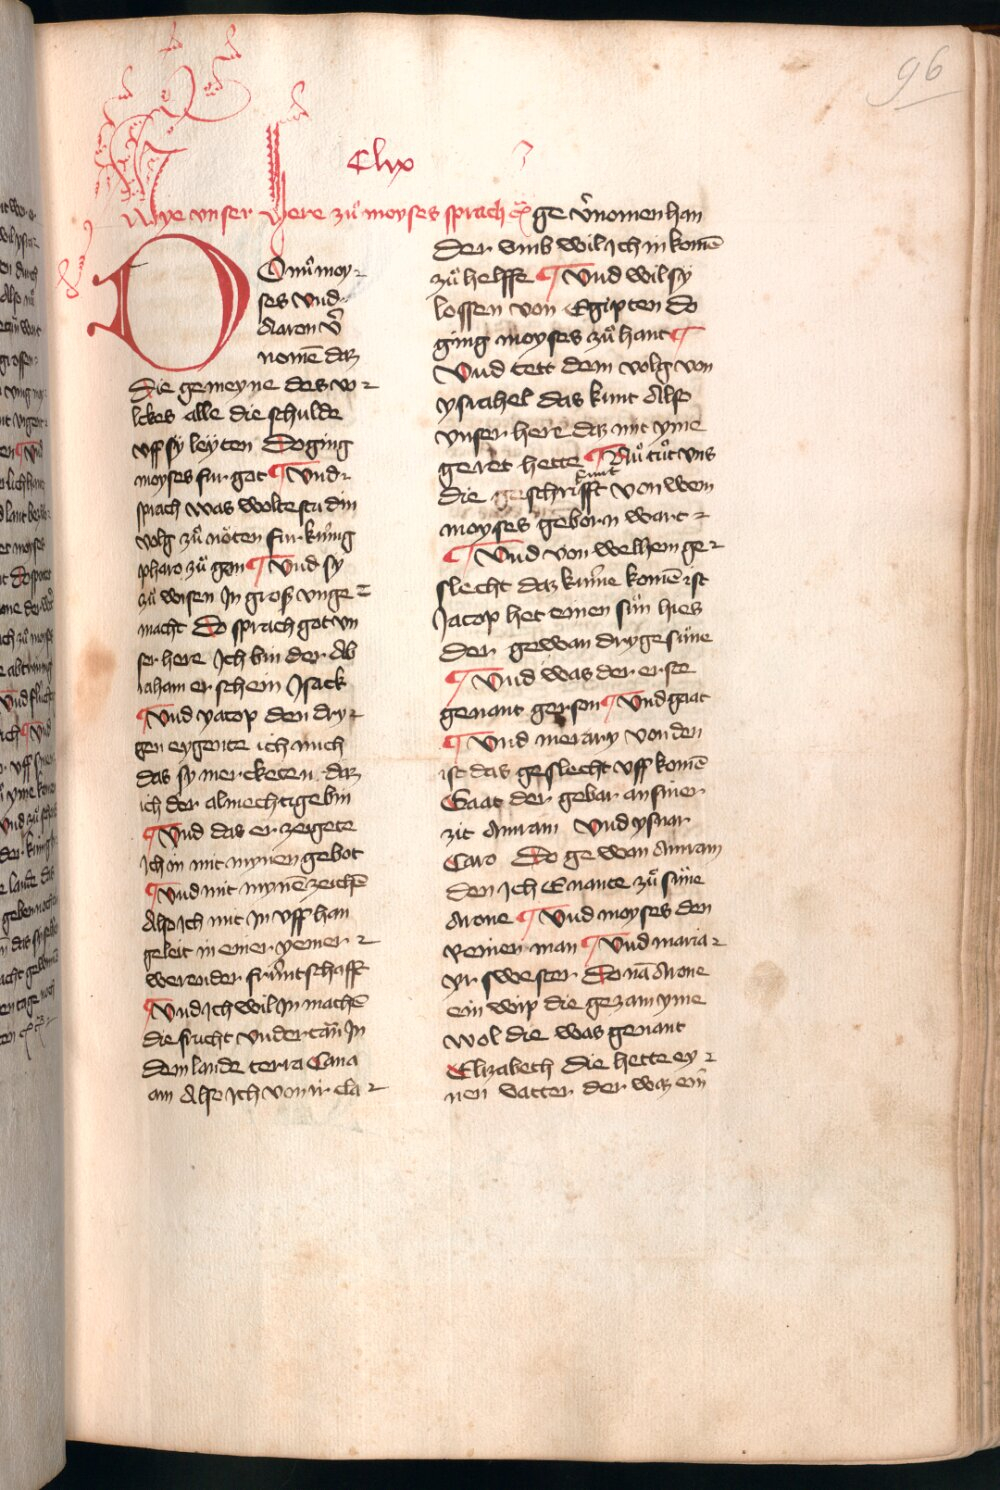 96
Clix
Wye vnser here zuͦ moyses sprach
DO nuͦ moy-
ses vnd
Aaron v̄
nomē daz
die gemeyne des vo-
lckes alle die schulde
vff sy leyten Do ging
moyses fur got ¶ Vnd
sprach was woltestu din
volg zuͦ nöten fur kunig
pharo zuͦ gan ¶ Vnd sy
zuͦ wisen In groß vnge-
macht Do sprach got vn
ser here Ich bin der Ab
raham erschein Isack
¶ Vnd yacop den dry-
gen eygente ich mich
das sy mercketen daz
ich der almechtige bin
¶ Vnd das er zeigete
Ich in mit mynen gebot
¶ Vnd mit mynē zeichē
Also Ich mit In vff han
geleit in einer yemer-
werender fruntschafft
¶ Vnd Ich wil In machē
die frucht vndertan In
dem lande terra Cana
am Also Ich von ir cla-
ge v̄nomen han
der vmb wil Ich in komē
zuͦ helffe ¶ Vnd wil sy
lossen von Egipten do
ging moyses zuͦ hant ¶
Vnd tett dem volg von
ysrahel das kunt Also
vnser here daz mit yme
geret hette ¶ Nuͦ tuͦt vns
die geschrifft kunt von wem
moyses geborn wart
¶ Vnd von welhem ge-
slecht daz kunne komē ist
Jacop het einen sün hies
der gewan dry gesüne
¶ Vnd was der erste
genant gerson ¶ Vnd gaat
¶ Vnd merary von den
ist das geslecht vff komē
Gaat der gebar an siner
zit Amram Vnd ysuar
Caro Do gewan Amram
den Ich E nante zuͦ süne
Arone ¶ Vnd moyses den
Reinen man ¶ Vnd maria
yr swester Do nā Arone
ein wip die gezam yme
wol die was genant
Elizabeth die hette ey-
nen vatter der waz ein